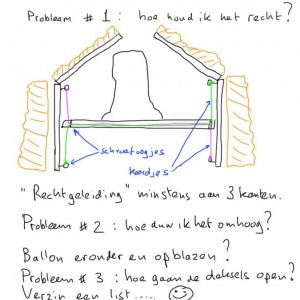 Probleem # 1 : hoe houd ik het recht?
schroefoogjes
koordjes
"Rechtgeleiding" minstens aan 3 kanten.
Probleem # 2 : hoe duw ik het omhoog?
Ballon eronder en opblazen?
Probleem # 3 : hoe gaan de daksels open?
Verzin een list.....